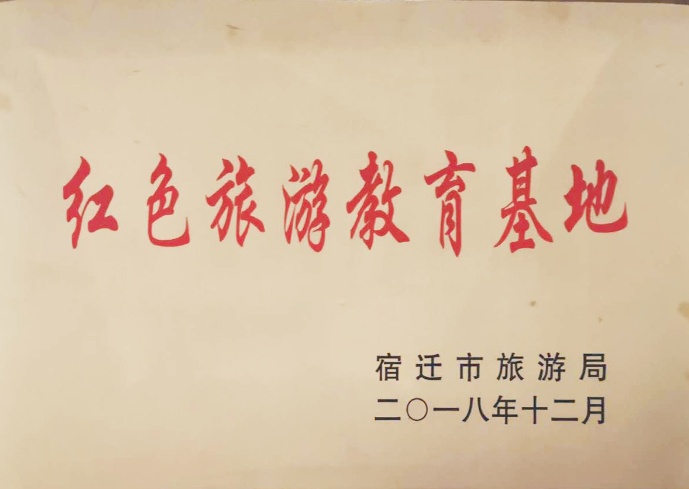 红色旅游教育基地
宿迁市旅游局
二〇一八年十二月